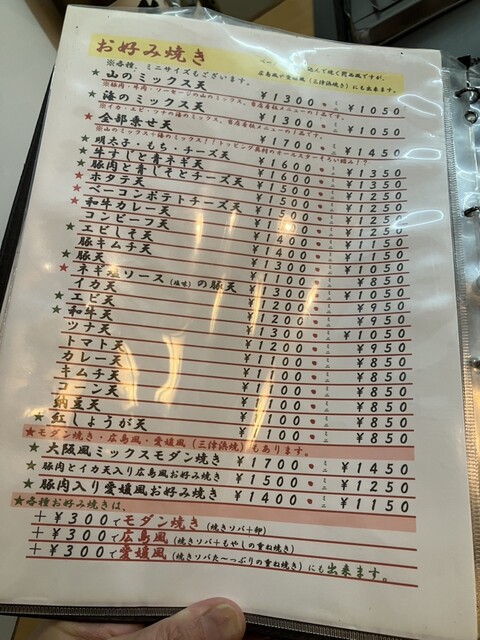 お好み焼き
※各種、ミニサイズもございます。
広島風や愛媛風(三津浜焼き)にも出来ます。
★山のミックス天 ¥1300・ミニ ¥1050
★海のミックス天 ¥1300・ミニ ¥1050
★全部乗せ天 ¥1700・ミニ ¥1450
明太子・もち・チーズ天 ¥1600・ミニ ¥1350
★牛すじと青ネギ天 ¥1600・ミニ ¥1350
★豚肉と青しそとチーズ天 ¥1500・ミニ ¥1250
★ホタテ天 ¥1500・ミニ ¥1250
★ベーコンポテトチーズ天 ミニ ¥1250
★和牛カレー天 ミニ ¥1150
コンビーフ天 ¥1400・ミニ ¥1150
★エビしそ天 ¥1400・ミニ ¥1150
豚キムチ天 ¥1300・ミニ ¥1050
★豚天 ¥1100・ミニ ¥850
★ネギ塩ソース(塩味)の豚天 ¥1300・ミニ ¥1050
イカ天 ¥1200・ミニ ¥950
★エビ天 ¥1200・ミニ ¥950
★和牛天 ¥1300・ミニ ¥1050
ツナ天 ¥1200・ミニ ¥950
トマト天 ¥1100・ミニ ¥850
カレー天 ¥1100・ミニ ¥850
キムチ天 ¥1100・ミニ ¥850
コーン天 ¥1100・ミニ ¥850
納豆天 ¥1100・ミニ ¥850
★紅しょうが天 ¥1100・ミニ ¥850
★モダン焼き・広島風・愛媛風(三津浜焼)もあります。
★大阪風ミックスモダン焼き ¥1700・ミニ ¥1450
★豚肉とイカ天入り広島風お好み焼き ¥1500・ミニ ¥1250
★豚肉入り愛媛風お好み焼き ¥1400・ミニ ¥1150
★各種お好み焼きは、
+¥300でモダン焼き(焼きソバ+卵)
+¥300で広島風(焼きソバ+もやしの重ね焼き)
+¥300で愛媛風(焼きソバた〜っぷりの重ね焼き)にも出来ます。